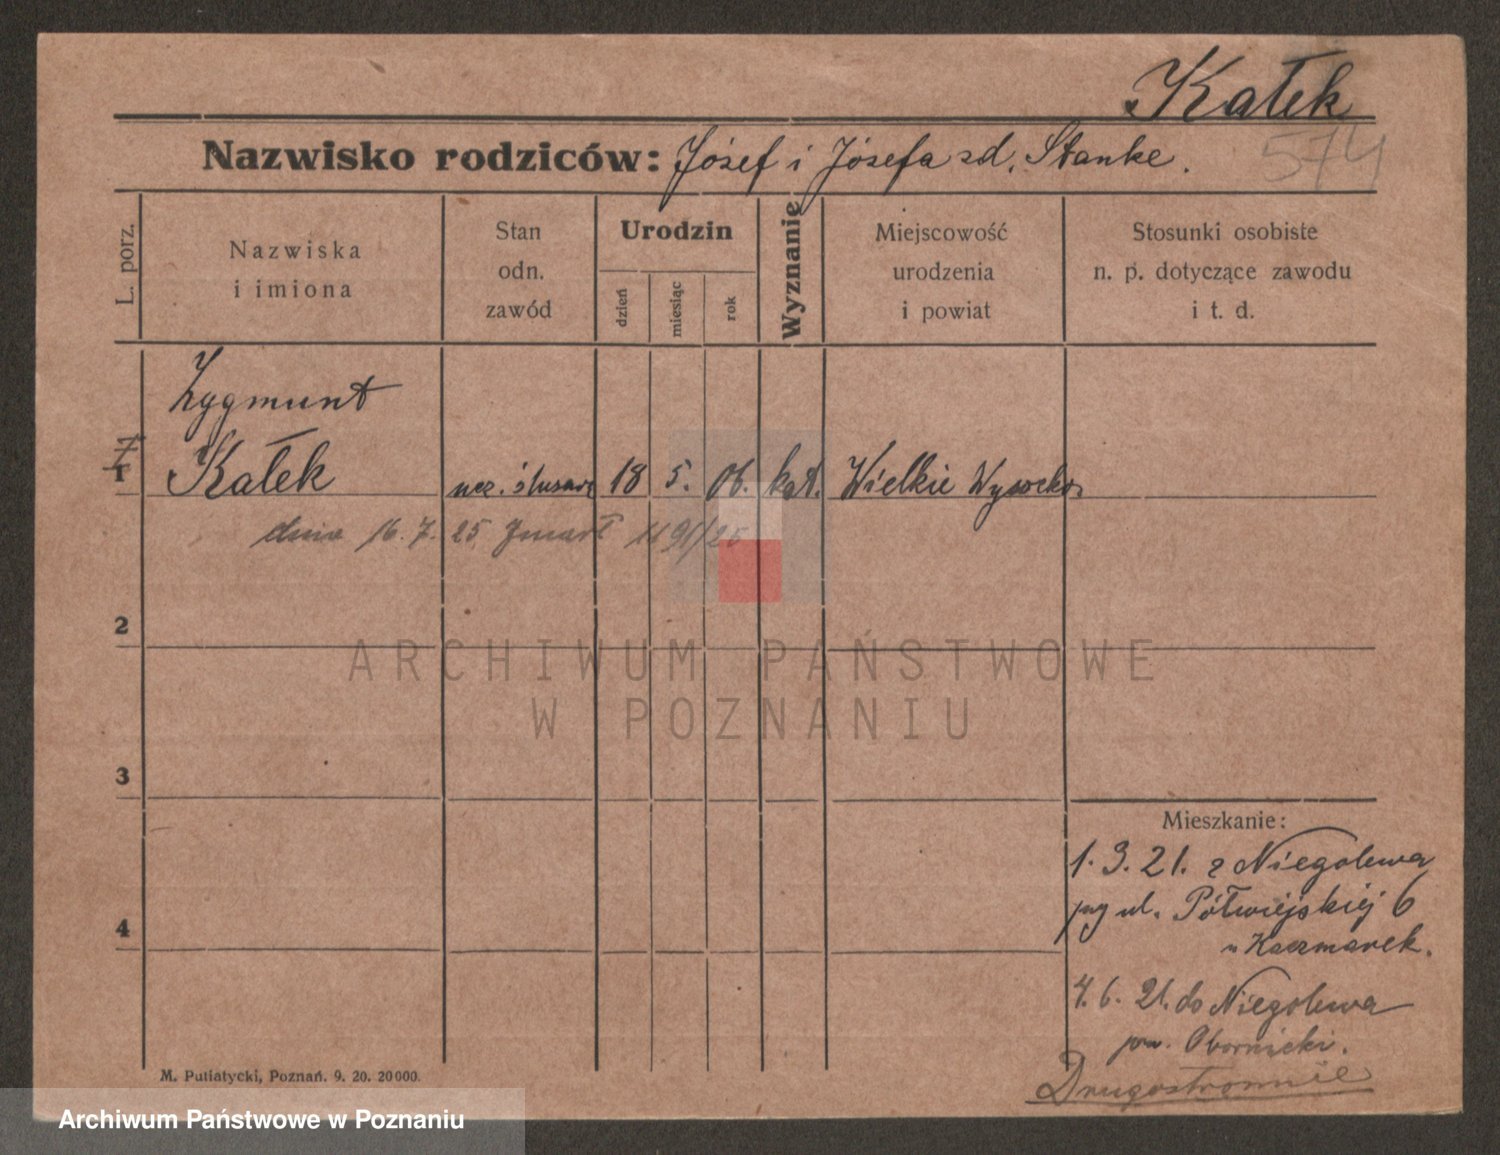 Kałek
Nazwisko rodziców: Józef i Józefa zd. Stanke.
574
L. porz.
Nazwiska
i imiona
Stan
odn.
zawód
Urodzin
dzień
miesiąc
rok
Wyznanie
Miejscowość
urodzenia
i powiat
Stosunki osobiste
n. p. dotyczące zawodu
i t. d.
Zygmunt
1 Kałek ucz. ślusar. 18 5. 06. kat. Wielkie Wysocko
dnia 16. 7. 25 Zmarł 1191/25
2
ARCHIWUM PAŃSTWOWE
W POZNANIU
3
Mieszkanie:
1. 3. 21. z Niegolewa
przy ul. Półwiejskiej 6
u Kaczmarek.
4
4. 6. 21. do Niegolewa
pow. Obornicki.
Drugostronnie
M. Putiatycki, Poznań. 9. 20. 20000.
Archiwum Państwowe w Poznaniu